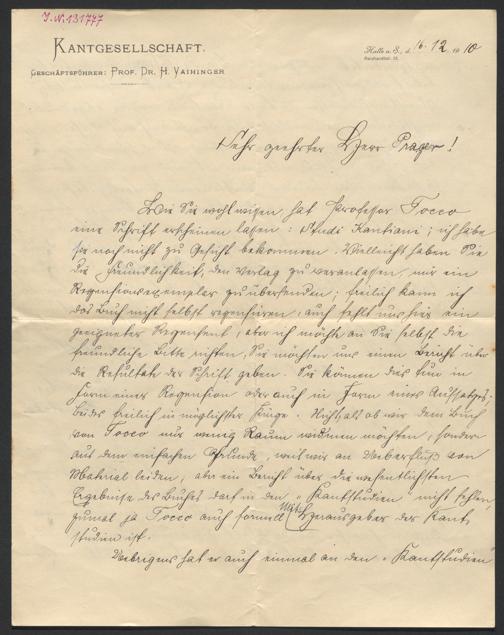 J. N. 131777
KANTGESELLSCHAFT.
GESCHÄFTSFÜHRER: PROF. DR. H. VAIHINGER
Halle a. S., d. 16. 12. 1910
Reichardtstr. 15.
Sehr geehrter Herr Prager!
Wie Sie wohl wissen hat Professor Tocco
eine Schrift erscheinen lassen: Studi Kantiani; ich habe
sie noch nicht zu Gesicht bekommen. Vielleicht haben Sie
die Freundlichkeit, den Verlag zu veranlassen, mir ein
Rezensionsexemplar zu übersenden; freilich kann ich
das Buch nicht selbst rezensieren, auch fehlt uns hier ein
geeigneter Rezensent, aber ich möchte an Sie selbst die
freundliche Bitte richten, Sie möchten uns einen Bericht über
die Resultate der Schrift geben. Sie können dies tun in
Form einer Rezension oder auch in Form eines Aufsatzes;
beides freilich in möglichster Kürze. Nicht als ob wir dem Buch
von Tocco nur wenig Raum widmen möchten, sondern
aus dem einfachen Grunde, weil wir an Ueberfluß von
Material leiden; aber ein Bericht über die wesentlichsten
Ergebnisse des Buches darf in den „Kantstudien" nicht fehlen,
zumal ja Tocco auch formell Mit-Herausgeber der Kant-
studien ist.
Uebrigens hat er auch einmal an den „Kantstudien"